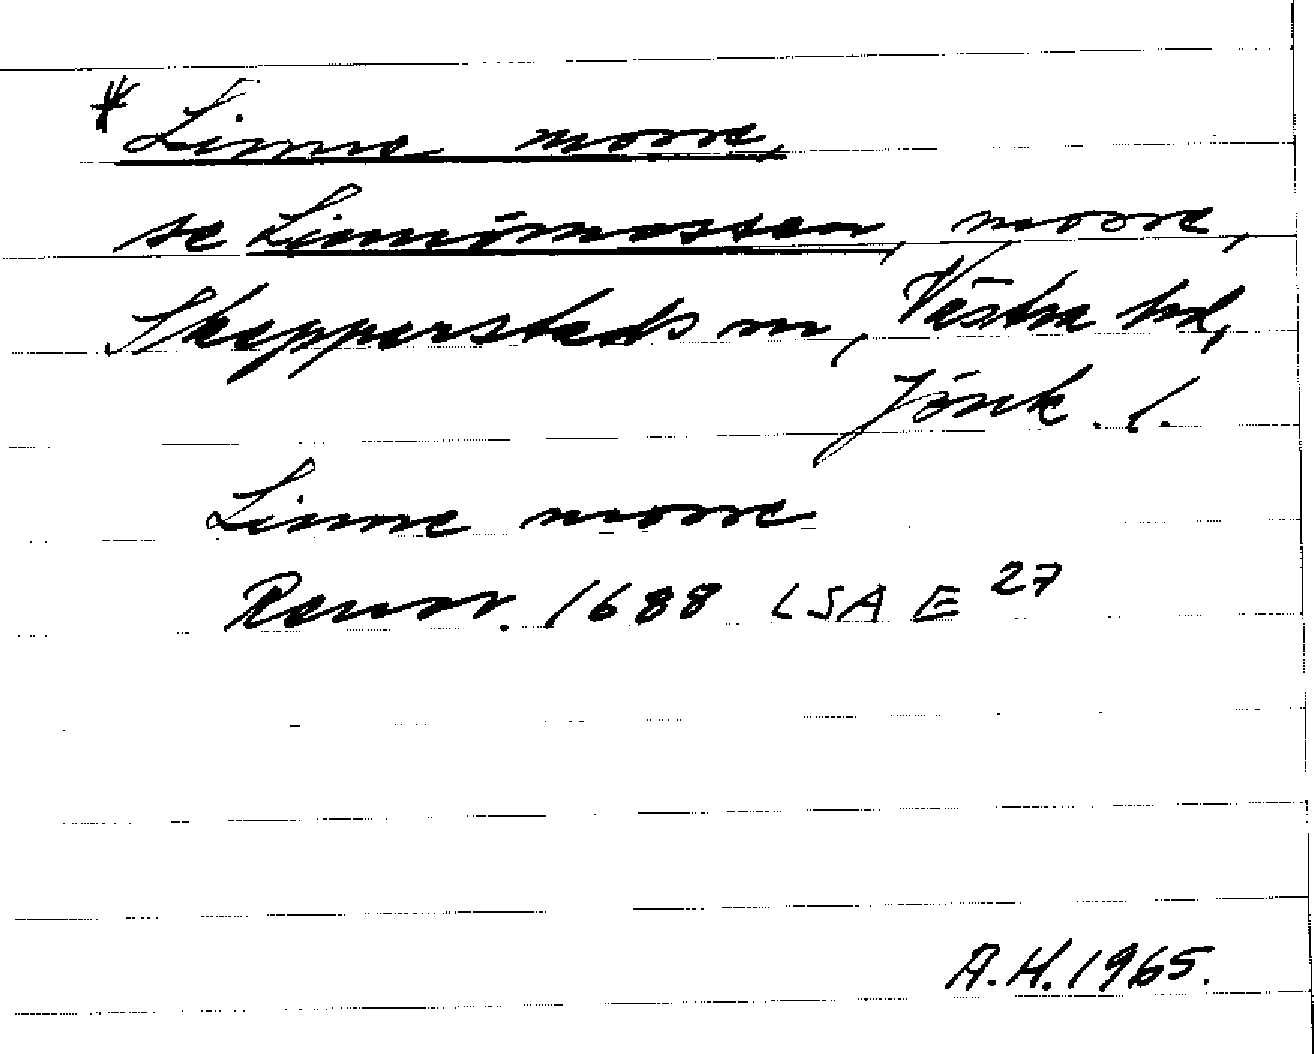 * Linne mosse,
se Linnömossen, mosse,
Skepperstads sn, Västra hd,
Jönk. l.
Linne mosse
Renov. 1688 LSA E 27
A.H. 1965.